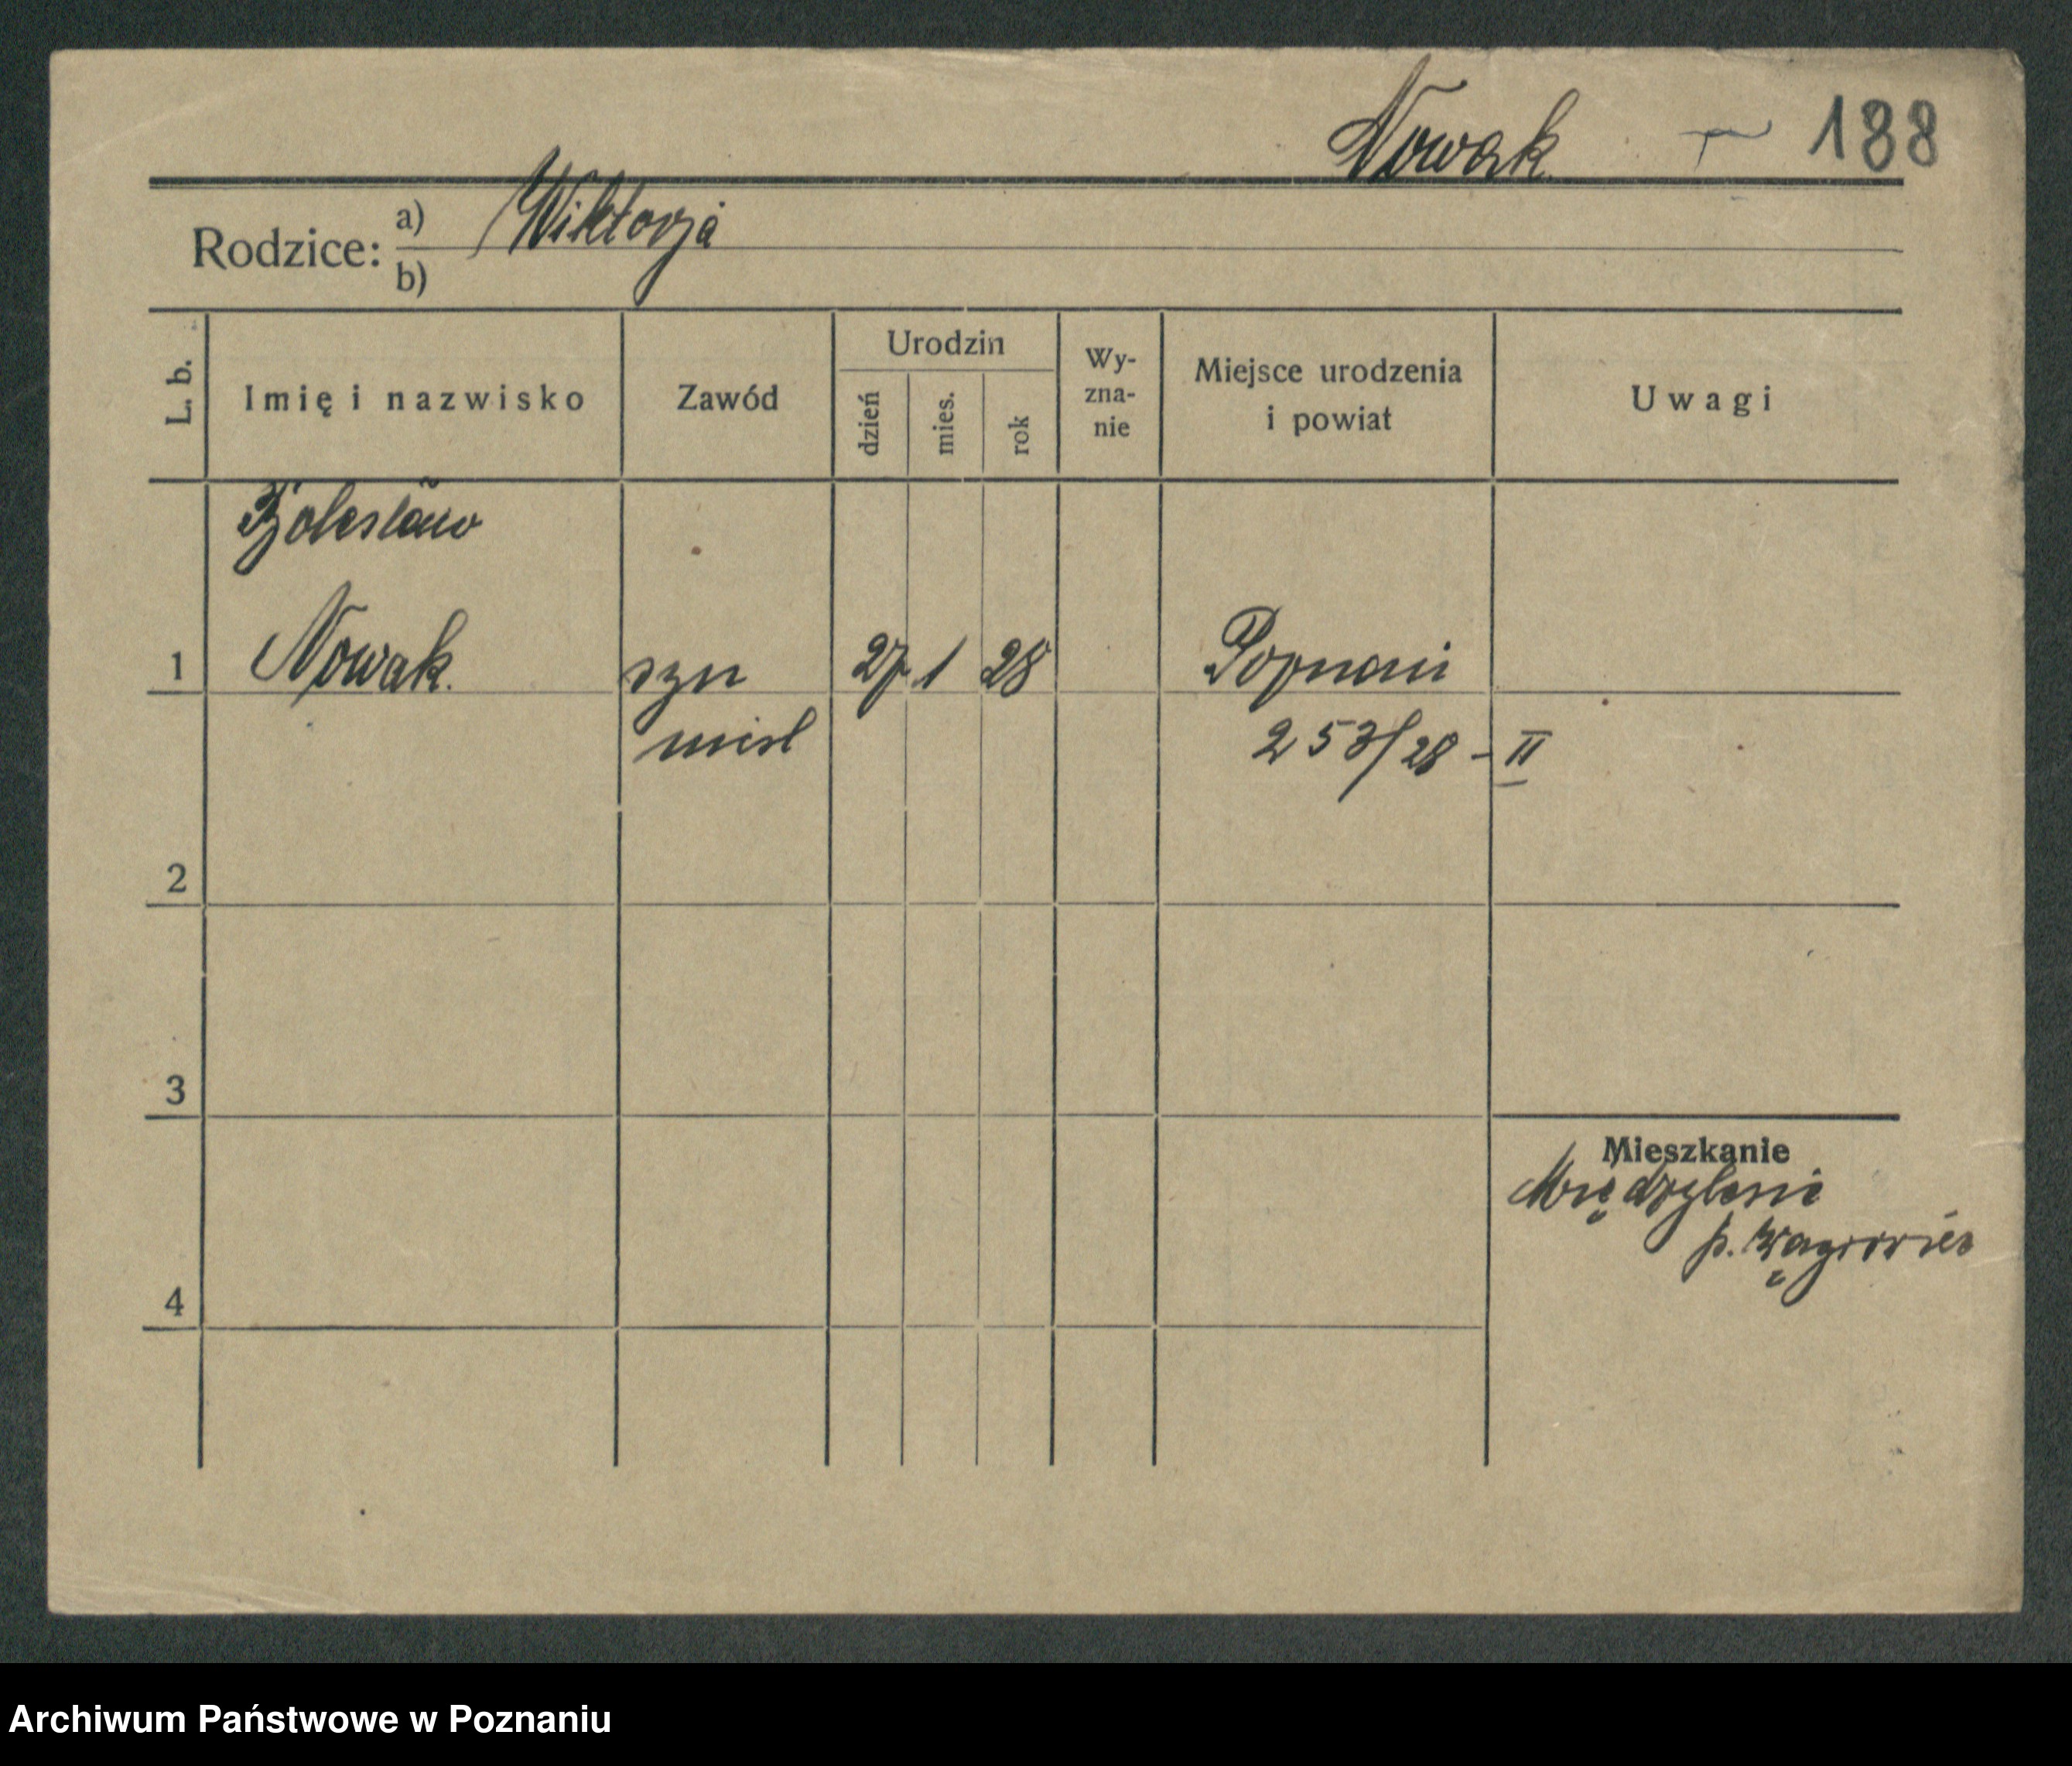 Nowak. 188
Rodzice: a) Wiktorja
b)
L. b.
Imię i nazwisko
Zawód
Urodzin
dzień
mies.
rok
Wy-
zna-
nie
Miejsce urodzenia
i powiat
Uwagi
Bolesław
1 Nowak. syn 27 1 28 Poznań
253/28 - II
2
3
4
Mieszkanie
Międzylesie
p. Wągrowiec
Archiwum Państwowe w Poznaniu